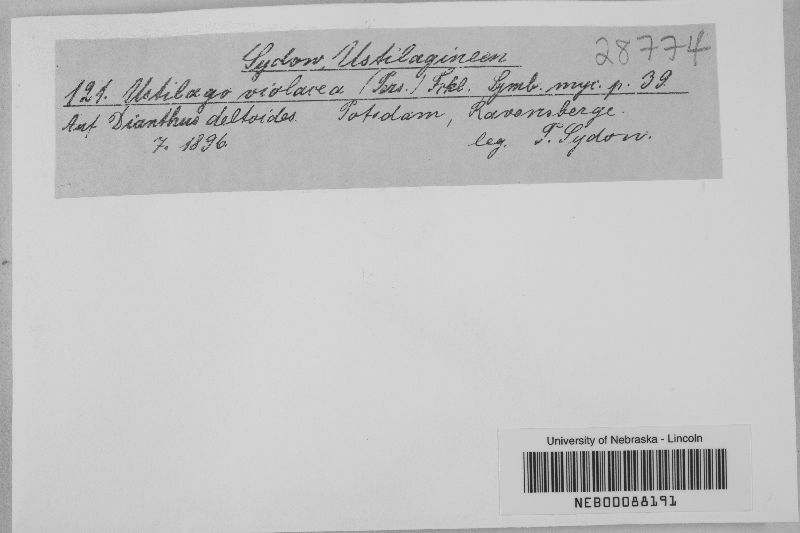 Sydow, Ustilagineen
28774
121. Ustilago violacea (Pers.) Fckl. Symb. myc. p. 39.
Auf Dianthus deltoides. Potsdam, Ravensberge.
7. 1896. leg. P. Sydow.
University of Nebraska - Lincoln
NEB00088191